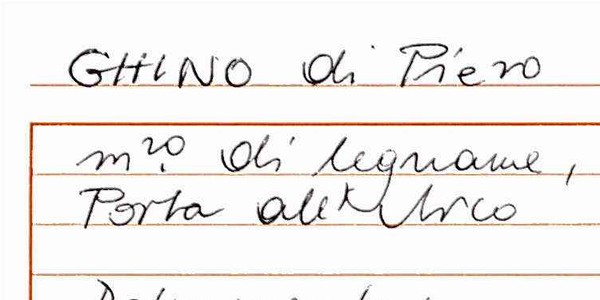 GHINO di Piero
m.ro di legname,
Porta all'Arco